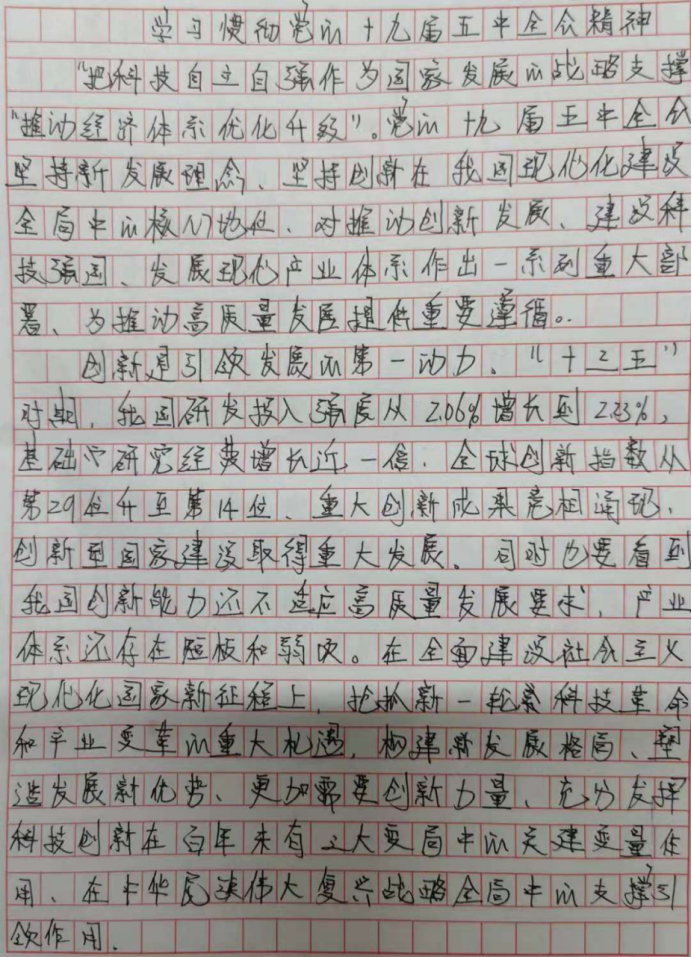 学习贯彻党的十九届五中全会精神
"把科技自立自强作为国家发展的战略支撑
"推动经济体系优化升级"。党的十九届五中全会
坚持新发展理念、坚持创新在我国现代化建设
全局中的核心地位、对推动创新发展、建设科
技强国、发展现代产业体系作出一系列重大部
署、为推动高质量发展提供重要遵循。
创新是引领发展的第一动力。"十三五"
时期,我国研发投入强度从2.06%增长到2.23%,
基础研究经费增长近一倍.全球创新指数从
第29位升至第14位、重大创新成果竞相涌现.
创新型国家建设取得重大发展.同时也要看到
我国创新能力还不适应高质量发展要求.产业
体系还存在短板和弱项。在全面建设社会主义
现代化国家新征程上.抢抓新一轮科技革命
和产业变革的重大机遇.构建新发展格局、塑
造发展新优势、更加需要创新力量、充分发挥
科技创新在百年未有之大变局中的关建变量作
用、在中华民族伟大复兴战略全局中的支撑引
领作用.